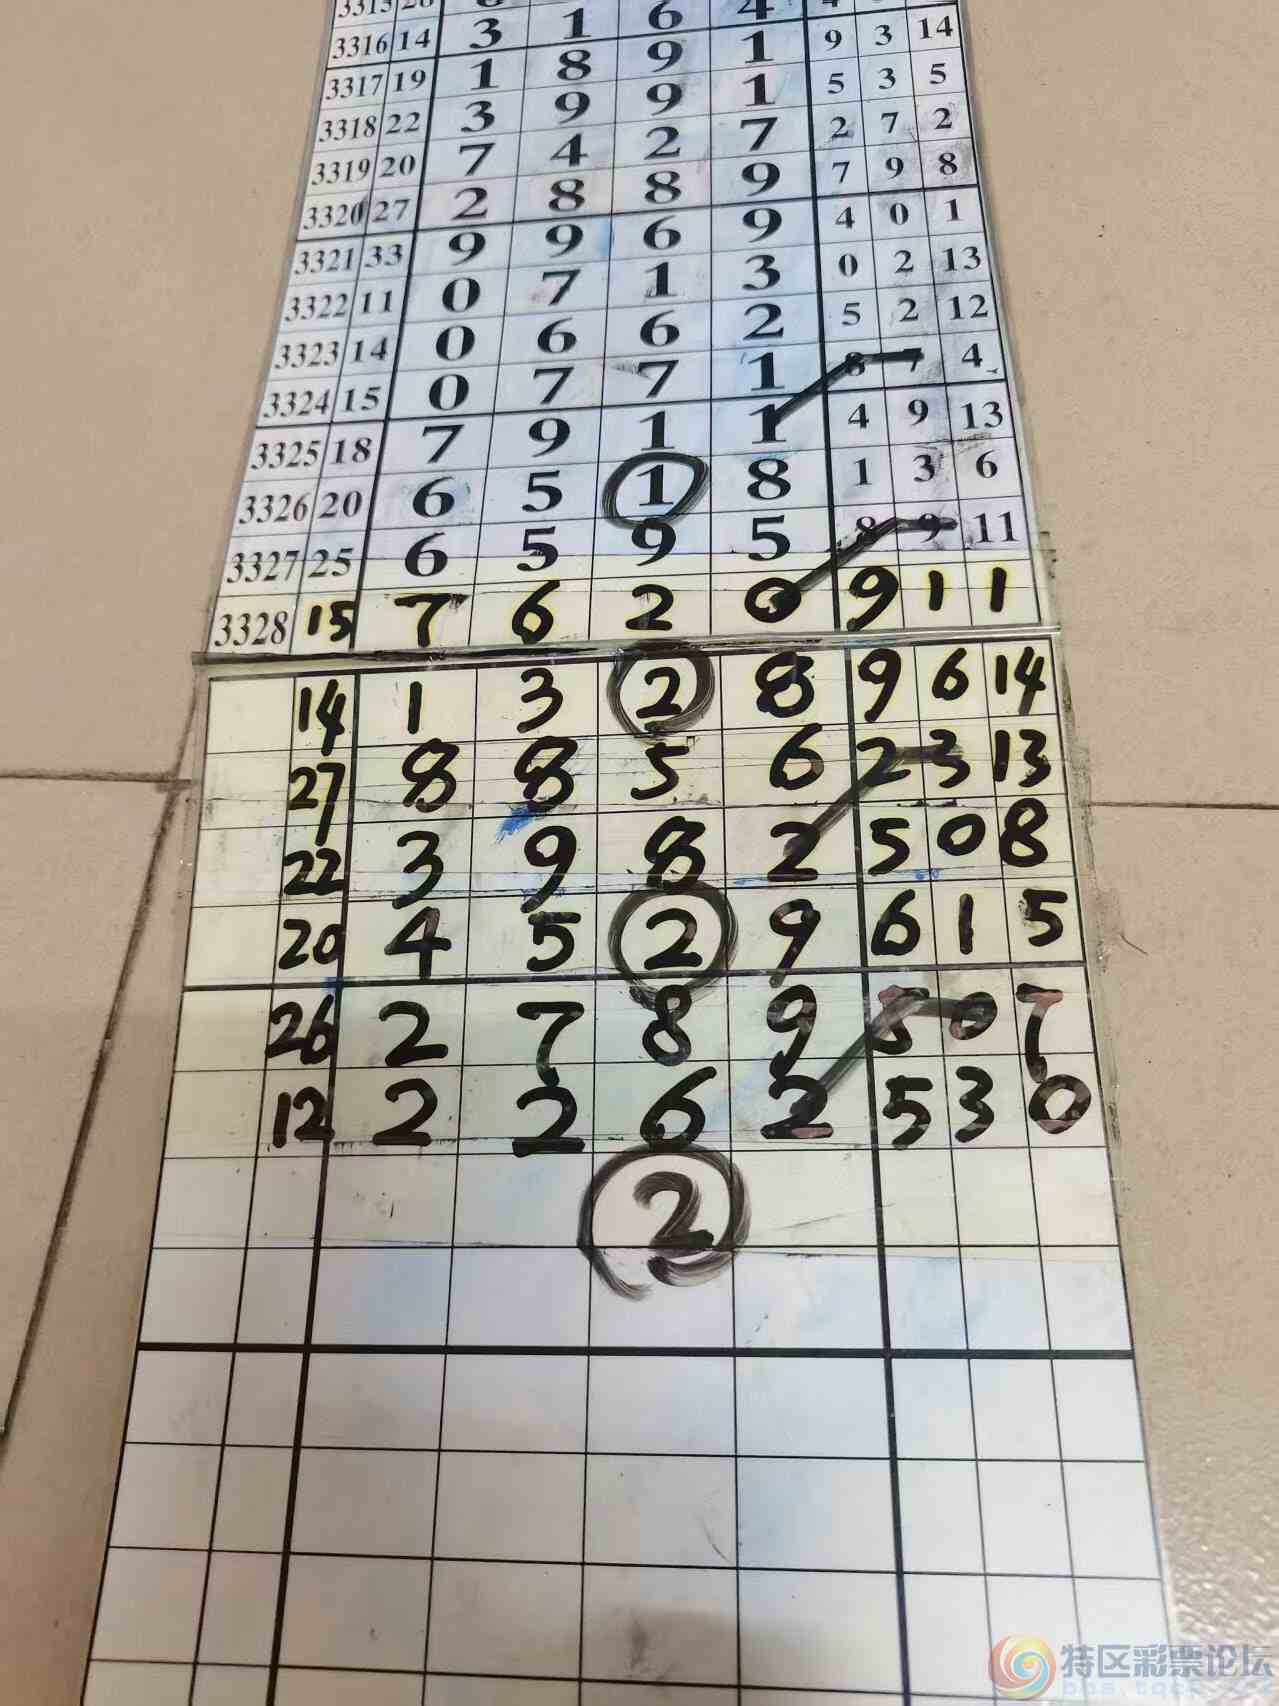 3316 14 3 1 6 4
3317 19 1 8 9 1 9 3 14
3318 22 3 9 9 1 5 3 5
3319 20 7 4 2 7 2 7 2
3320 27 2 8 8 9 7 9 8
3321 33 9 9 6 9 4 0 1
3322 11 0 7 1 3 0 2 13
3323 14 0 6 6 2 5 2 12
3324 15 0 7 7 1 8 7 4
3325 18 7 9 1 1 4 9 13
3326 20 6 5 1 8 1 3 6
3327 25 6 5 9 5 8 9 11
3328 15 7 6 2 0 9 1 1
14 1 3 2 8 9 6 14
27 8 8 5 6 2 3 13
22 3 9 8 2 5 0 8
20 4 5 2 9 6 1 5
26 2 7 8 9 5 0 7
12 2 2 6 2 5 3 0
2
特区彩票论坛